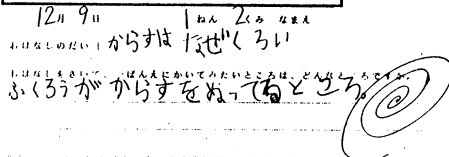 12月 9日 1ねん 2くみ なまえ
おはなしのだい からすは なぜくろい
おはなしをきいて、ばんえにかいてみたいところは、どんなところですか。
ふくろうが からすをぬってるところ。